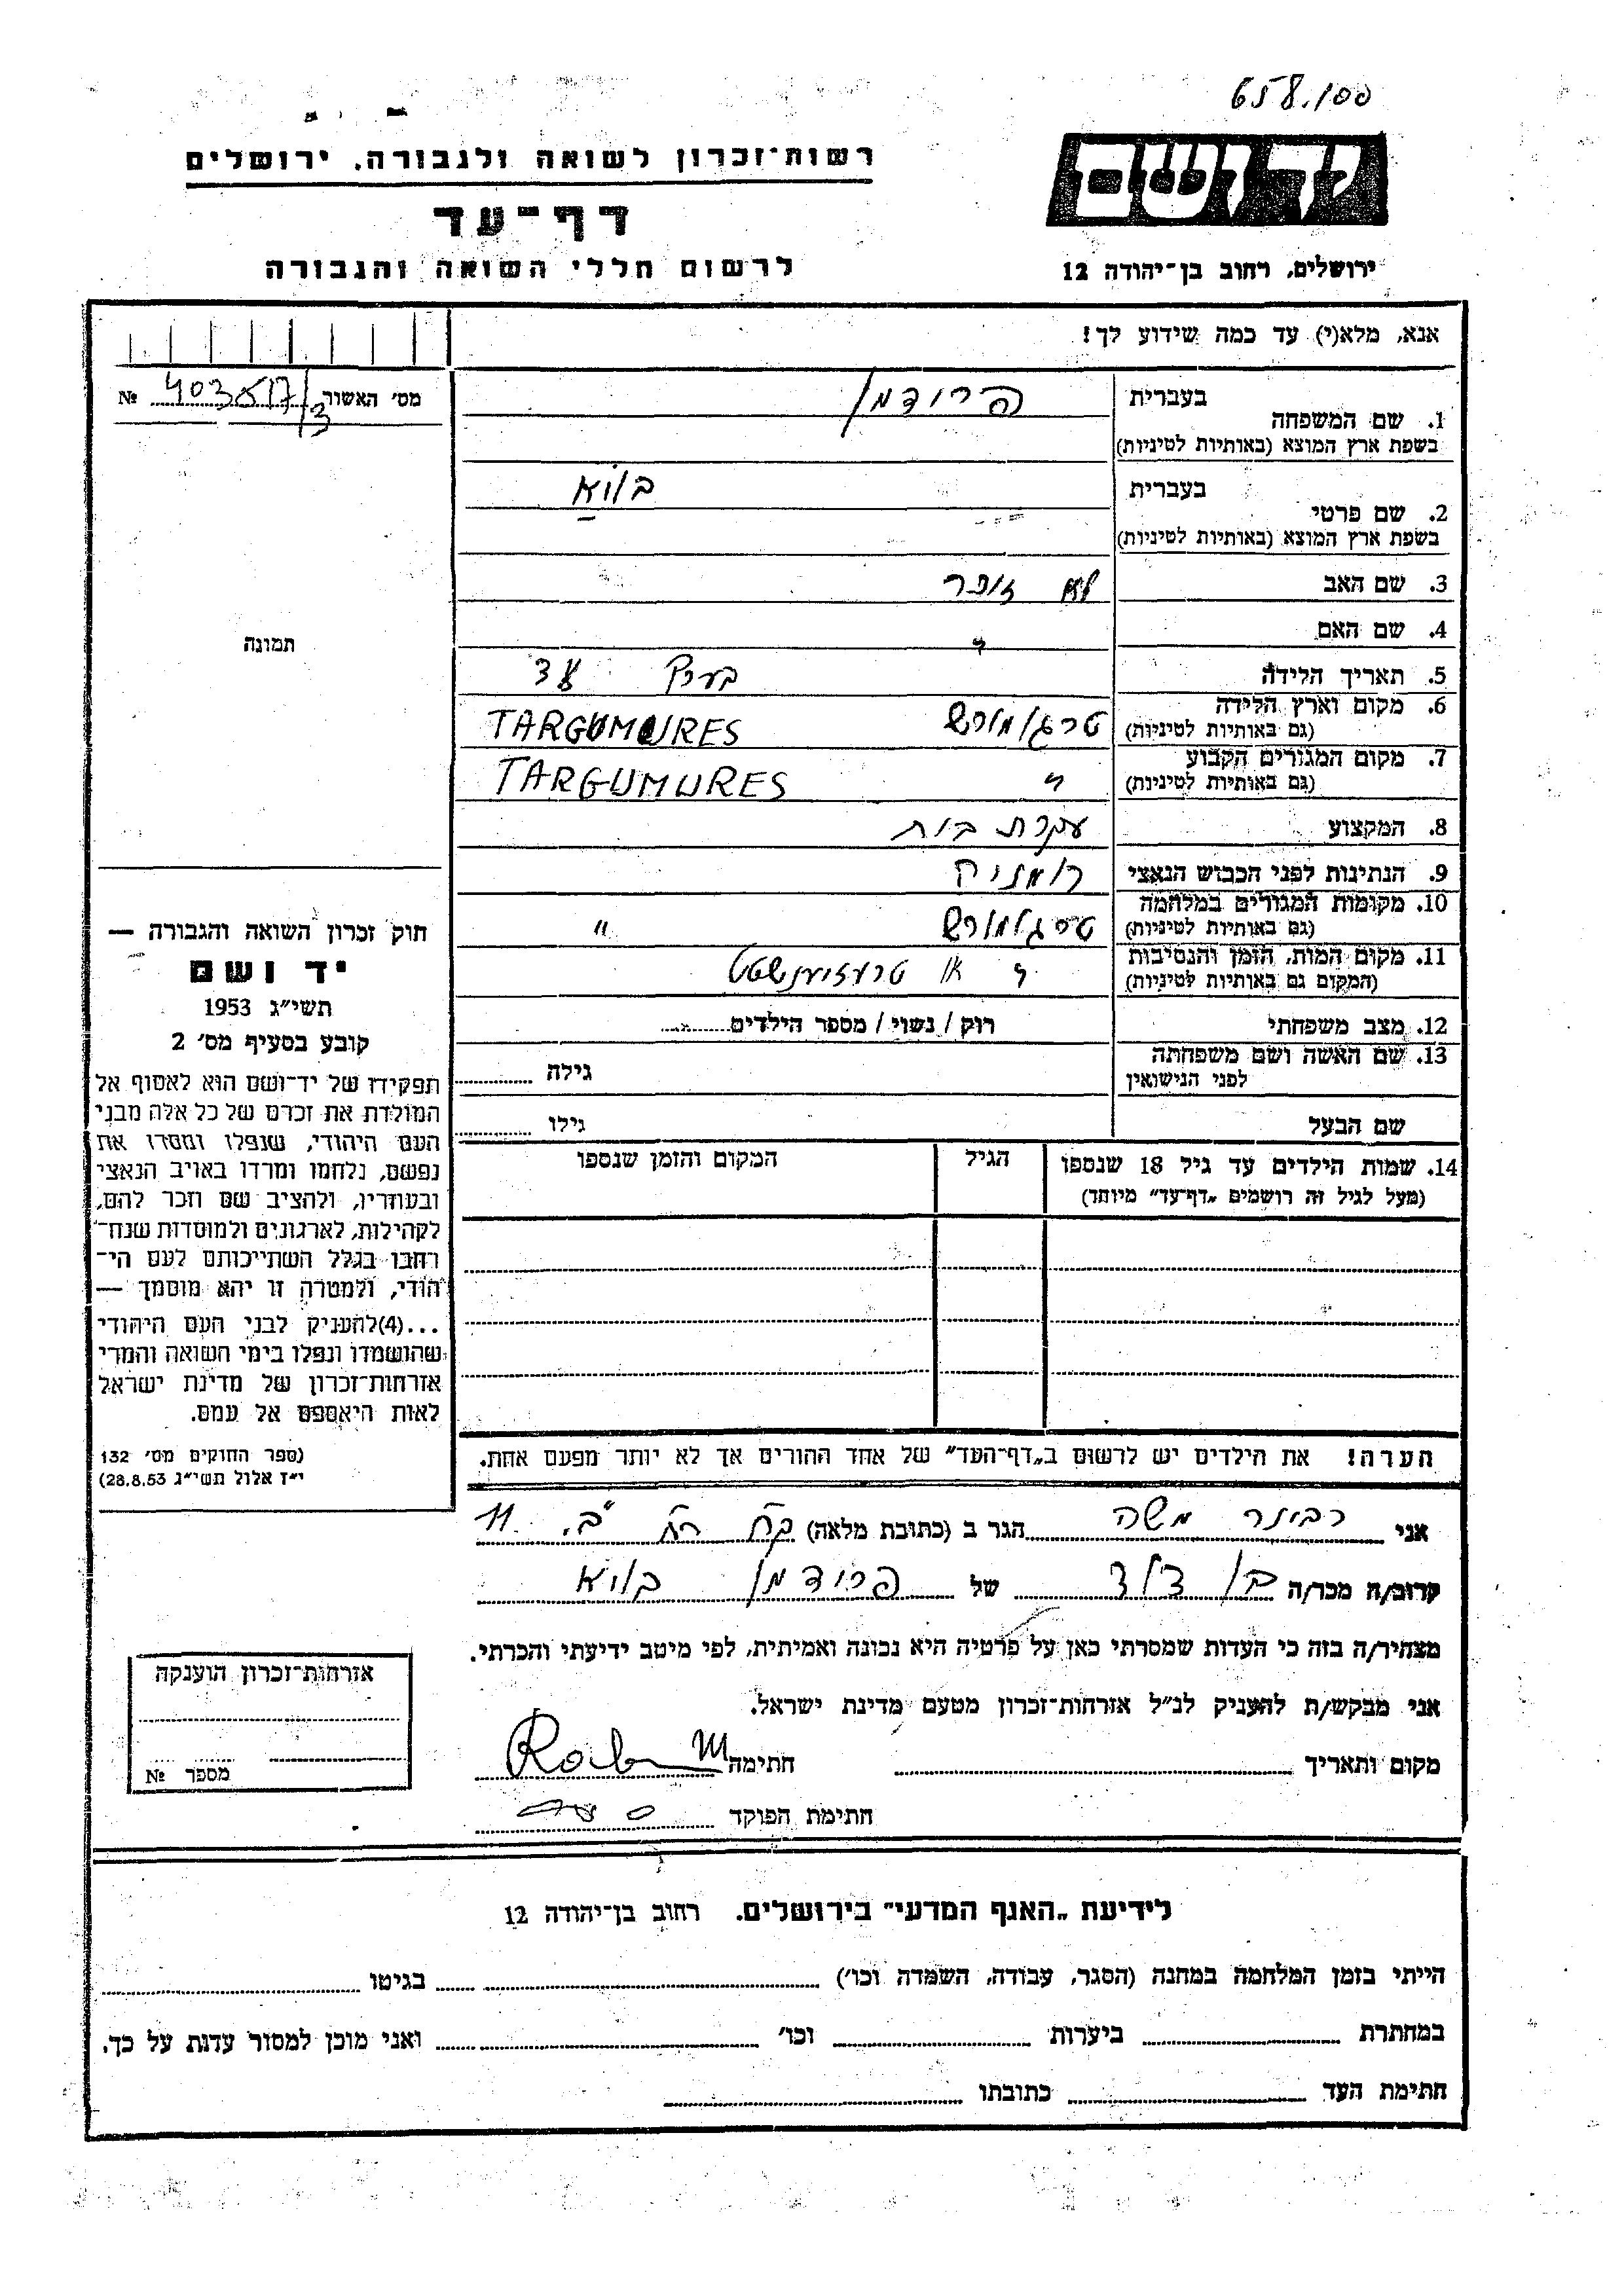 658.100
רשות־זכרון לשואה ולגבורה, ירושלים
יד ושם
דף־עד
לרשום חללי השואה והגבורה
ירושלים, רחוב בן־יהודה 12
אנא, מלא(י) עד כמה שידוע לך!
מס׳ האשור 403517/3 №
1. שם המשפחה
בעברית פרודמן
בשפת ארץ המוצא (באותיות לטיניות)
2. שם פרטי
בעברית
בשפת ארץ המוצא (באותיות לטיניות)
3. שם האב לא זוכר
4. שם האם "
5. תאריך הלידה בערך
6. מקום וארץ הלידה
(גם באותיות לטיניות) TARGUMURES
7. מקום המגורים הקבוע
(גם באותיות לטיניות) " TARGUMURES
8. המקצוע עקרת בית
9. הנתינות לפני הכבוש הנאצי רומניה
10. מקומות המגורים במלחמה
(גם באותיות לטיניות) "
11. מקום המות, הזמן והנסיבות
(המקום גם באותיות לטיניות) טרעזיענשטט
12. מצב משפחתי רוק / נשוי / מספר הילדים
13. שם האשה ושם משפחתה
לפני הנישואין גילה
שם הבעל גילו
14. שמות הילדים עד גיל 18 שנספו
(מעל לגיל זה רושמים „דף־עד” מיוחד)
הגיל
המקום והזמן שנספו
הערה! את הילדים יש לרשום ב„דף־העד” של אחד ההורים אך לא יותר מפעם אחת.
תמונה
חוק זכרון השואה והגבורה —
יד ושם
תשי״ג 1953
קובע בסעיף מס׳ 2
תפקידו של יד־ושם הוא לאסוף אל
המולדת את זכרם של כל אלה מבני
העם היהודי, שנפלו ומסרו את
נפשם, נלחמו ומרדו באויב הנאצי
ובעוזריו, ולהציב שם וזכר להם,
לקהילות, לארגונים ולמוסדות שנח־
רבו בגלל השתייכותם לעם הי־
הודי, ולמטרה זו יהא מוסמך —
...(4)להעניק לבני העם היהודי
שהושמדו ונפלו בימי השואה והמרי
אזרחות־זכרון של מדינת ישראל
לאות היאספם אל עמם.
(ספר החוקים מס׳ 132
י״ז אלול תשי״ג 28.8.53)
אני רבינר משה הגר ב (כתובת מלאה) 11
קרוב/ה מכר/ה בן דוד של פרודמן
מצהיר/ה בזה כי העדות שמסרתי כאן על פרטיה היא נכונה ואמיתית, לפי מיטב ידיעתי והכרתי.
אני מבקש/ת להעניק לנ״ל אזרחות־זכרון מטעם מדינת ישראל.
מקום ותאריך חתימה
חתימת הפוקד
אזרחות־זכרון הוענקה
מספר №
לידיעת „האגף המדעי” בירושלים. רחוב בן־יהודה 12
הייתי בזמן המלחמה במחנה (הסגר, עבודה, השמדה וכו׳) בגיטו
במחתרת ביערות וכו׳ ואני מוכן למסור עדות על כך.
חתימת העד כתובתו